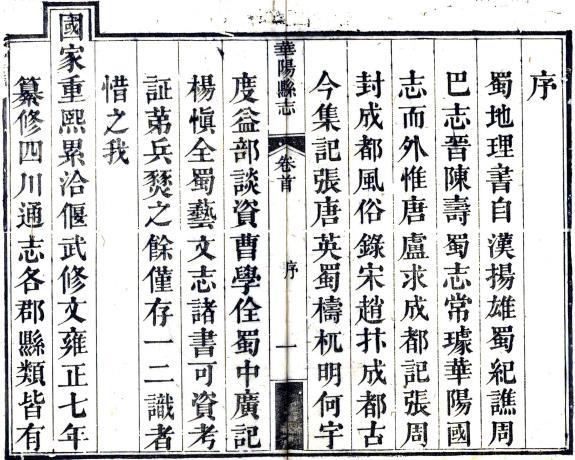 序
蜀地理書自漢揚雄蜀紀譙周
巴志晉陳壽蜀志常璩華陽國
志而外惟唐盧求成都記張周
封成都風俗錄宋趙抃成都古
今集記張唐英蜀檮杌明何宇
華陽縣志 卷首 序 一
度益部談資曹學佺蜀中廣記
楊慎全蜀藝文志諸書可資考
証苐兵燹之餘僅存一二識者
惜之我
國家重熙累洽偃武修文雍正七年
纂修四川通志各郡縣類皆有